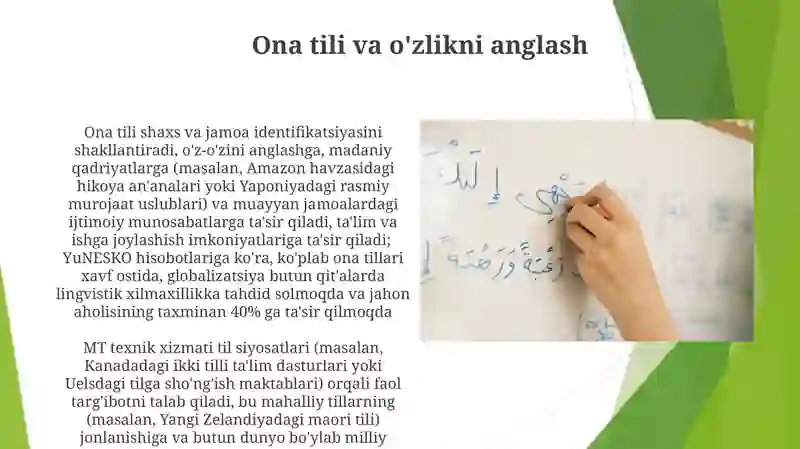 Ona tili va o'zlikni anglash
Ona tili shaxs va jamoa identifikatsiyasini
shakllantiradi, o'z-o'zini anglashga, madaniy
qadriyatlarga (masalan, Amazon havzasidagi
hikoya an'analari yoki Yaponiyadagi rasmiy
murojaat uslublari) va muayyan jamoalardagi
ijtimoiy munosabatlarga ta'sir qiladi, ta'lim va
ishga joylashish imkoniyatlariga ta'sir qiladi;
YuNESKO hisobotlariga ko'ra, ko'plab ona tillari
xavf ostida, globalizatsiya butun qit'alarda
lingvistik xilmaxillikka tahdid solmoqda va jahon
aholisining taxminan 40% ga ta'sir qilmoqda
MT texnik xizmati til siyosatlari (masalan,
Kanadadagi ikki tilli ta'lim dasturlari yoki
Uelsdagi tilga sho'ng'ish maktablari) orqali faol
targ'ibotni talab qiladi, bu mahalliy tillarning
(masalan, Yangi Zelandiyadagi maori tili)
jonlanishiga va butun dunyo bo'ylab milliy